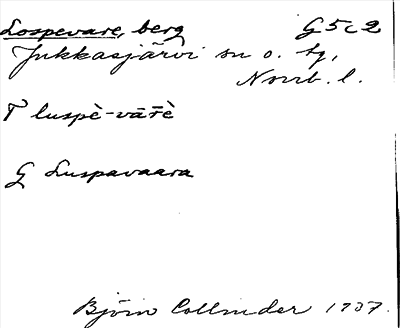 Lospevare, berg G5c2
Jukkasjärvi sn o. tg,
Norrb. l.
T luspè-vāřè
G Luspavaara
Björn Collinder 1937.